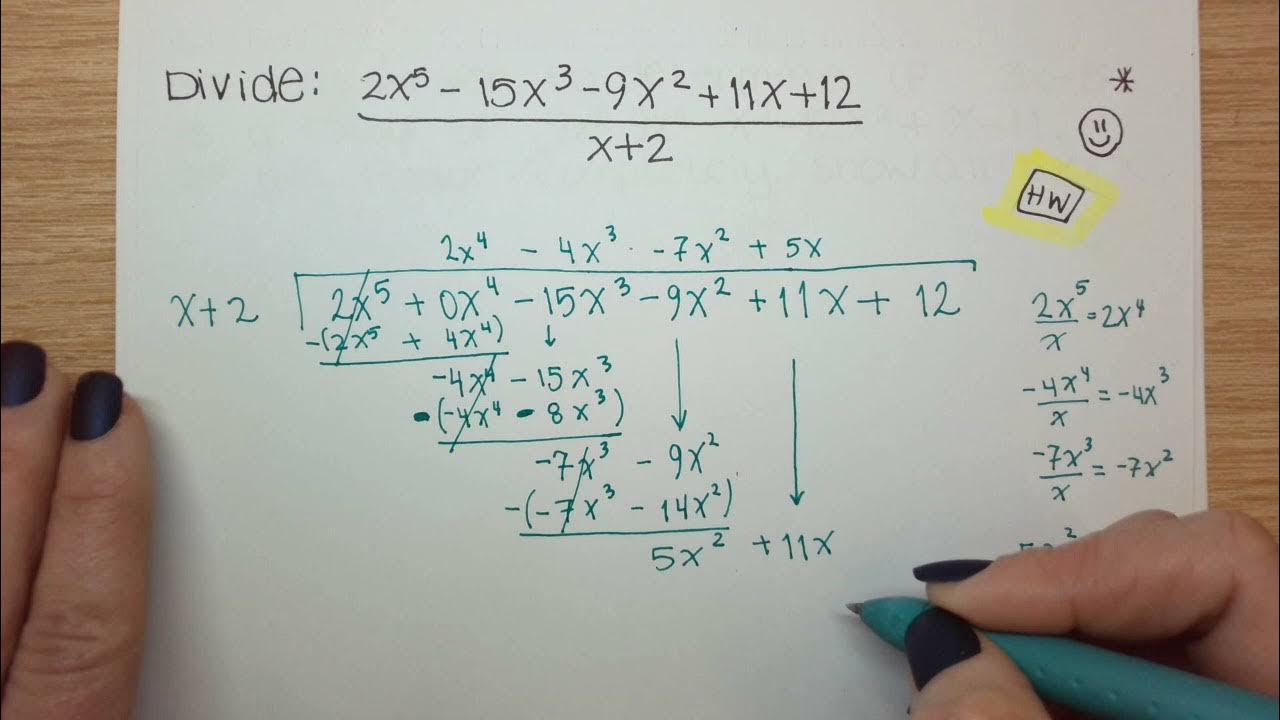 Divide: 2x⁵ - 15x³ - 9x² + 11x + 12
x+2
*
HW
2x⁴ - 4x³ - 7x² + 5x
x+2 2x⁵ + 0x⁴ - 15x³ - 9x² + 11x + 12
-(2x⁵ + 4x⁴)
-4x⁴ - 15x³
-(-4x⁴ - 8x³)
-7x³ - 9x²
-(-7x³ - 14x²)
5x² + 11x
2x⁵/x = 2x⁴
-4x⁴/x = -4x³
-7x³/x = -7x²